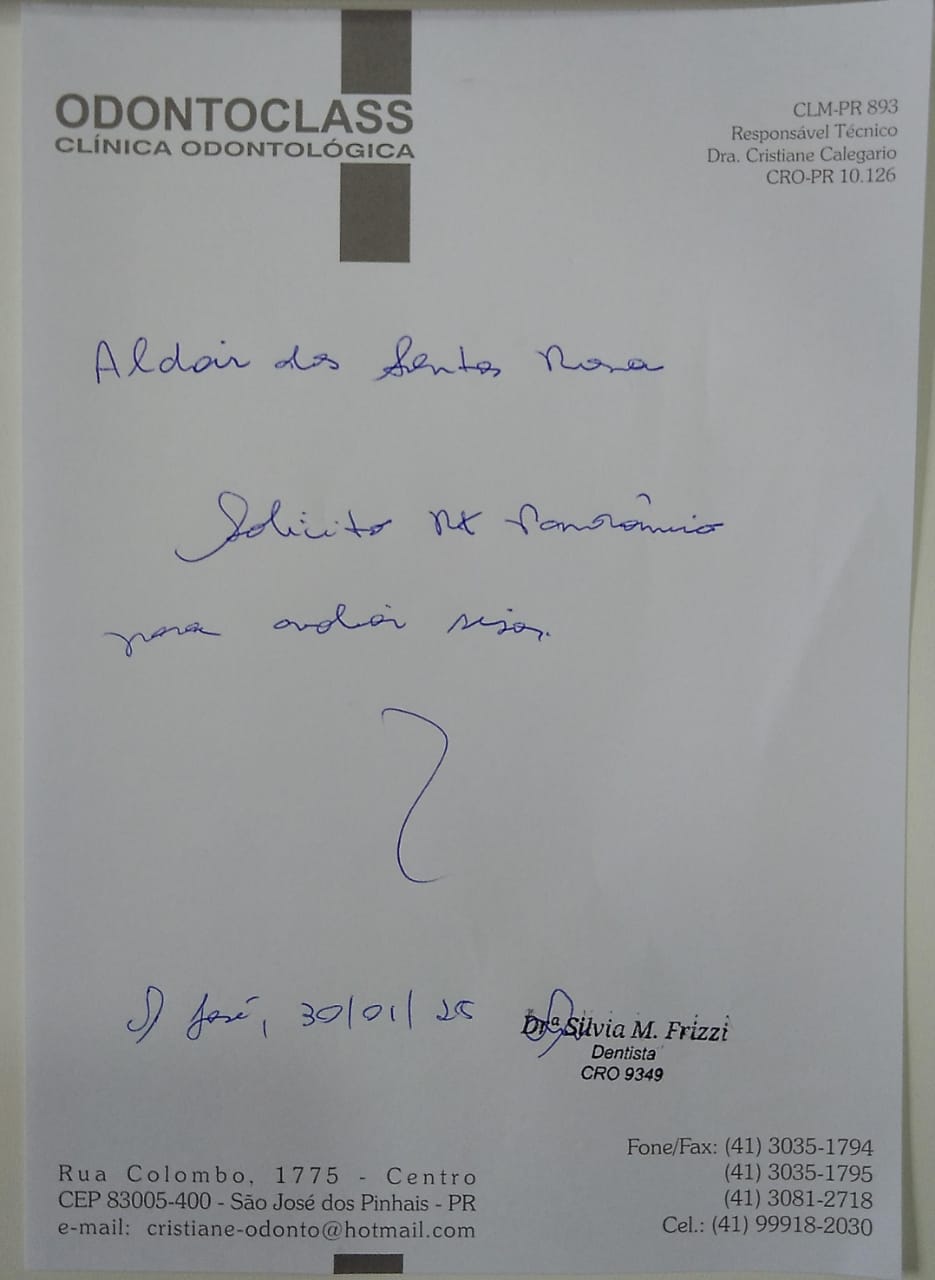 ODONTOCLASS
CLÍNICA ODONTOLÓGICA
CLM-PR 893
Responsável Técnico
Dra. Cristiane Calegario
CRO-PR 10.126
Aldair dos Santos Rosa
Solicito RX Panorâmico
para avaliar sisos.
S José, 30/01/25
Drª Silvia M. Frizzi
Dentista
CRO 9349
Rua Colombo, 1775 - Centro
CEP 83005-400 - São José dos Pinhais - PR
e-mail: cristiane-odonto@hotmail.com
Fone/Fax: (41) 3035-1794
(41) 3035-1795
(41) 3081-2718
Cel.: (41) 99918-2030